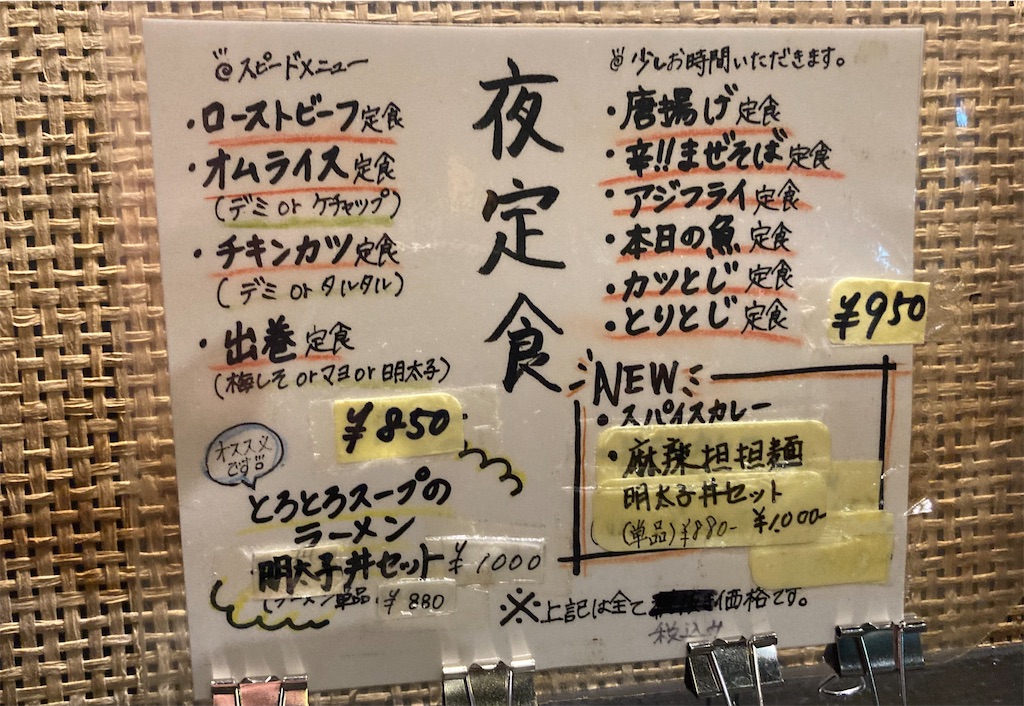 夜定食
◎スピードメニュー
・ローストビーフ定食
・オムライス定食
(デミ or ケチャップ)
・チキンカツ定食
(デミ or タルタル)
・出巻定食
(梅しそ or マヨ or 明太子)
¥850
オススメ
です!!
とろとろスープの
ラーメン
明太子丼セット ¥1000
(ラーメン単品 ¥880
◎少しお時間いただきます。
・唐揚げ定食
・辛!!まぜそば定食
・アジフライ定食
・本日の魚定食
・カツとじ定食
・とりとじ定食
¥950
NEW
・スパイスカレー
・麻辣担担麺
明太子丼セット
(単品)¥880- ¥1,000-
※上記は全て 価格です。
税込み